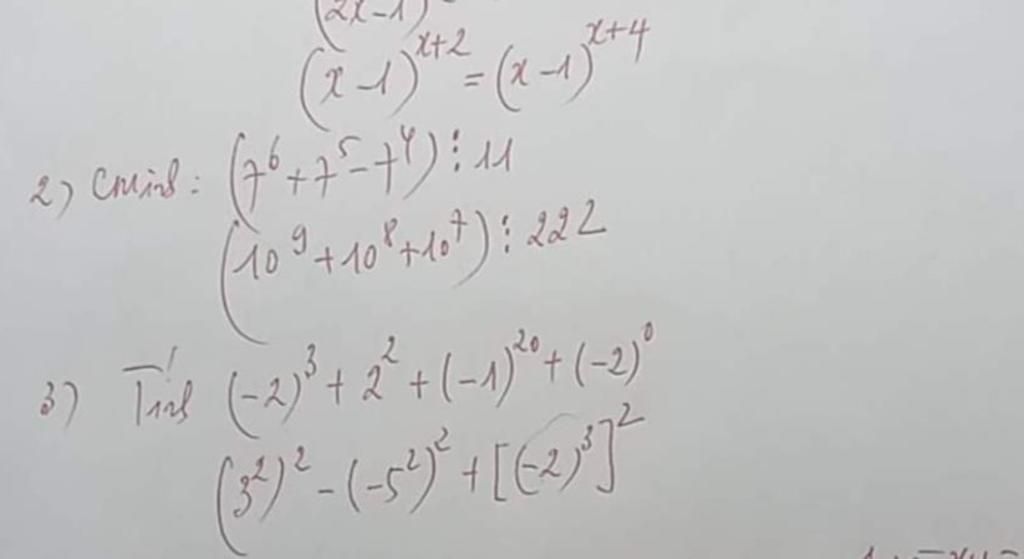 (2x-1)
(x-1)^{x+2} = (x-1)^{x+4}
2) CMinh: (7^6 + 7^5 - 7^4) ⋮ 11
(10^9 + 10^8 + 10^7) ⋮ 222
3) Tính (-2)^3 + 2^2 + (-1)^{20} + (-2)^0
(3^2)^2 - (-5^2)^2 + [(-2)^3]^2